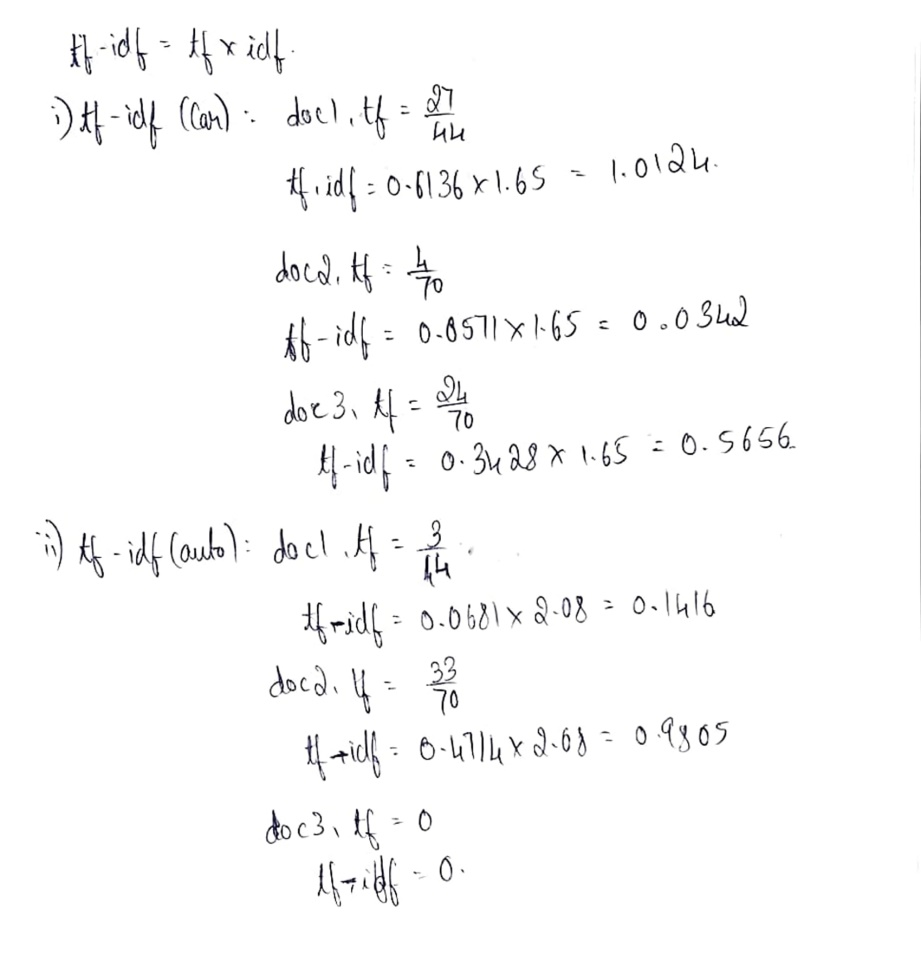 tf-idf = tf x idf.
i) tf-idf (Car) : doc1, tf = 27/44
tf.idf = 0.6136 x 1.65 = 1.0124.
doc2, tf = 4/70
tf-idf = 0.0571 x 1.65 = 0.0342
doc3, tf = 24/70
tf-idf = 0.3428 x 1.65 = 0.5656
ii) tf-idf (auto) : doc1, tf = 3/44.
tf-idf = 0.0681 x 2.08 = 0.1416
doc2, tf = 33/70
tf-idf = 0.4714 x 2.08 = 0.9805
doc3, tf = 0
tf-idf = 0.